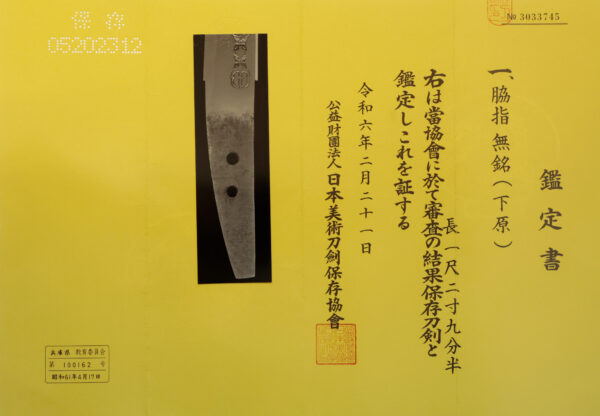 № 3033745
鑑定書
一、脇指 無銘(下原)
長一尺二寸九分半
右は當協會に於て審査の結果保存刀剣と
鑑定しこれを証する
令和六年二月二十一日
公益財團法人日本美術刀劍保存協會
保存
05202312
兵庫県 教育委員会
第 100162 号
昭和61年4月17日